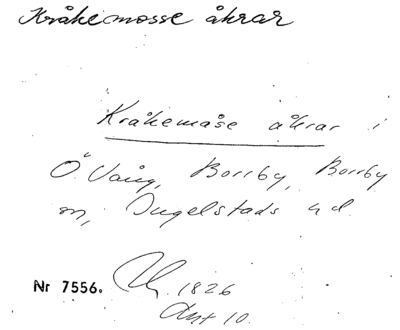 Kråkemosse åkrar
Kråkemåse åkrar i
Ö. Vång, Borrby, Borrby
sn, Ingelstads hd.
Nr 7556. 1826
Akt 10.